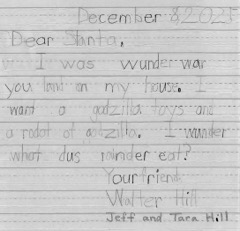 December 8, 2025
Dear Santa,
I was wunder war
you land on my house. I
want a godzilla toys and
a rodot of godzilla. I wunder
what dus rainder eat?
Your friend,
Walter Hill
Jeff and Tara Hill